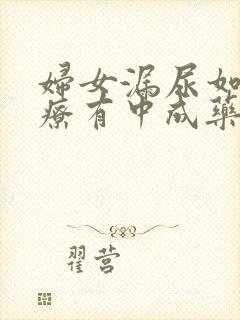 婦女漏尿如
療有中成藥
翟营